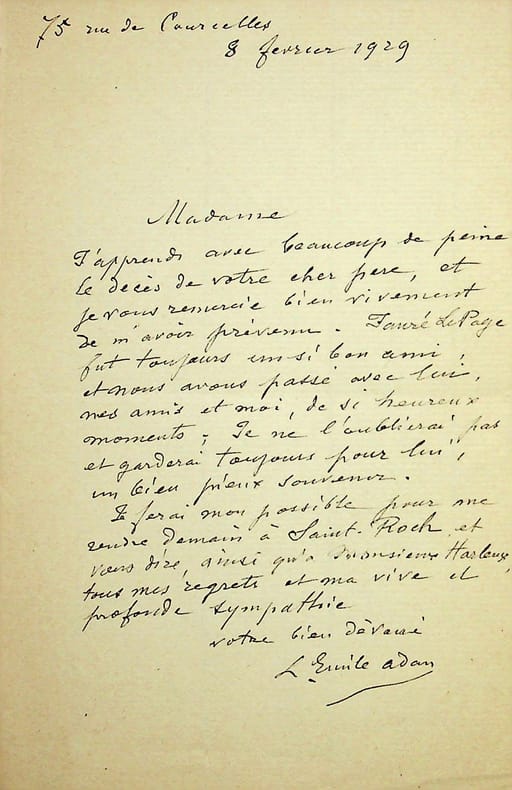 75 rue de Courcelles
8 fevrier 1929
Madame
J'apprends avec beaucoup de peine
le décès de votre cher père, et
je vous remercie bien vivement
de m'avoir prévenu. Fauré LePage
fut toujours un si bon ami,
et nous avons passé avec lui,
mes amis et moi, de si heureux
moments; Je ne l'oublierai pas
et garderai toujours pour lui,
un bien pieux souvenir.
Je ferai mon possible pour me
rendre demain à Saint-Roch et
vous dire, ainsi qu'à monsieur
tous mes regrets et ma vive et
profonde sympathie
votre bien dévoué
L Emile adan